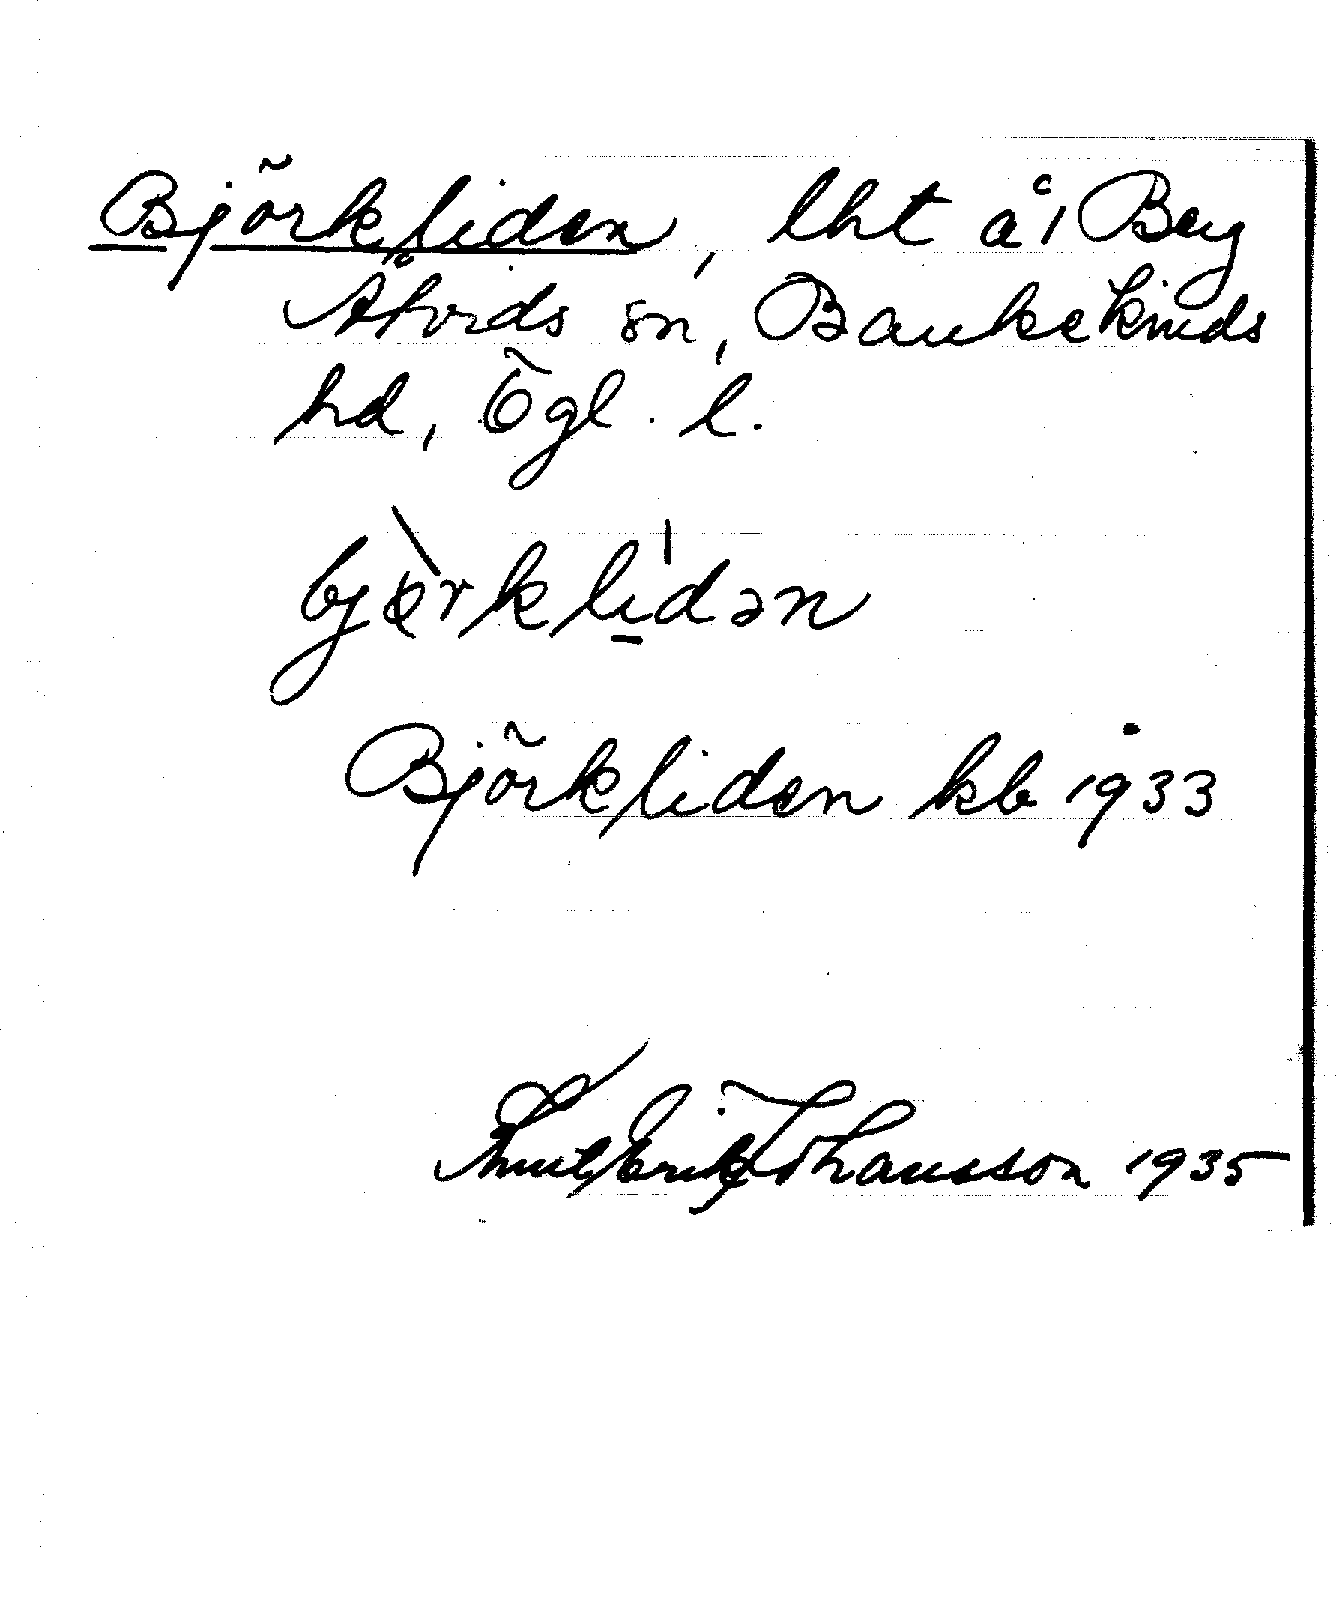 Björkliden, lht å 1 Berg
Åtvids sn, Bankekinds
hd, Ögl. l.
bjòrklìdən
Björkliden kb 1933
Knut Erik Johansson 1935